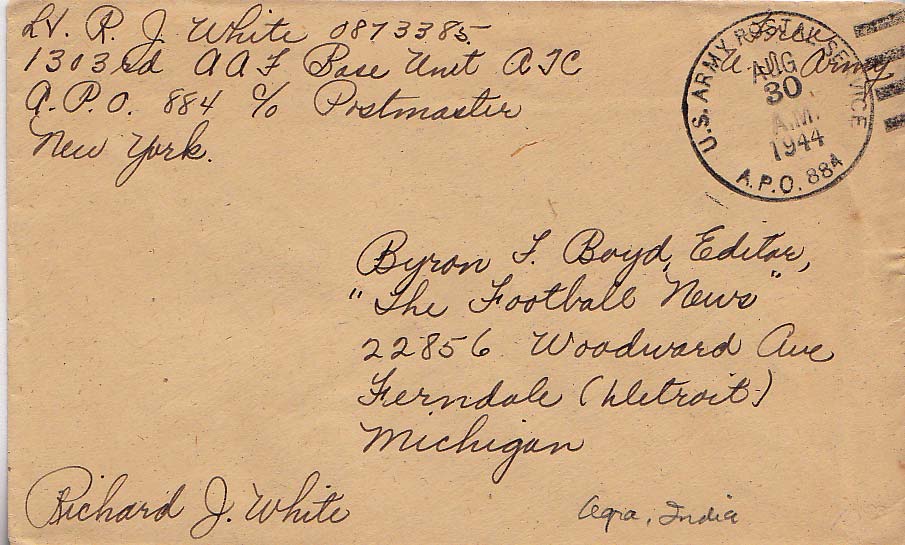 Lt. R. J. White 0873385
1303rd AAF Base Unit ATC
A.P.O. 884 c/o Postmaster
New York.
Free
U.S. Army
U.S. ARMY POSTAL SERVICE
AUG
30
A.M.
1944
A.P.O. 884
Byron F. Boyd, Editor,
"The Football News"
22856 Woodward Ave
Ferndale (Detroit)
Michigan
Richard J. White
Agra, India